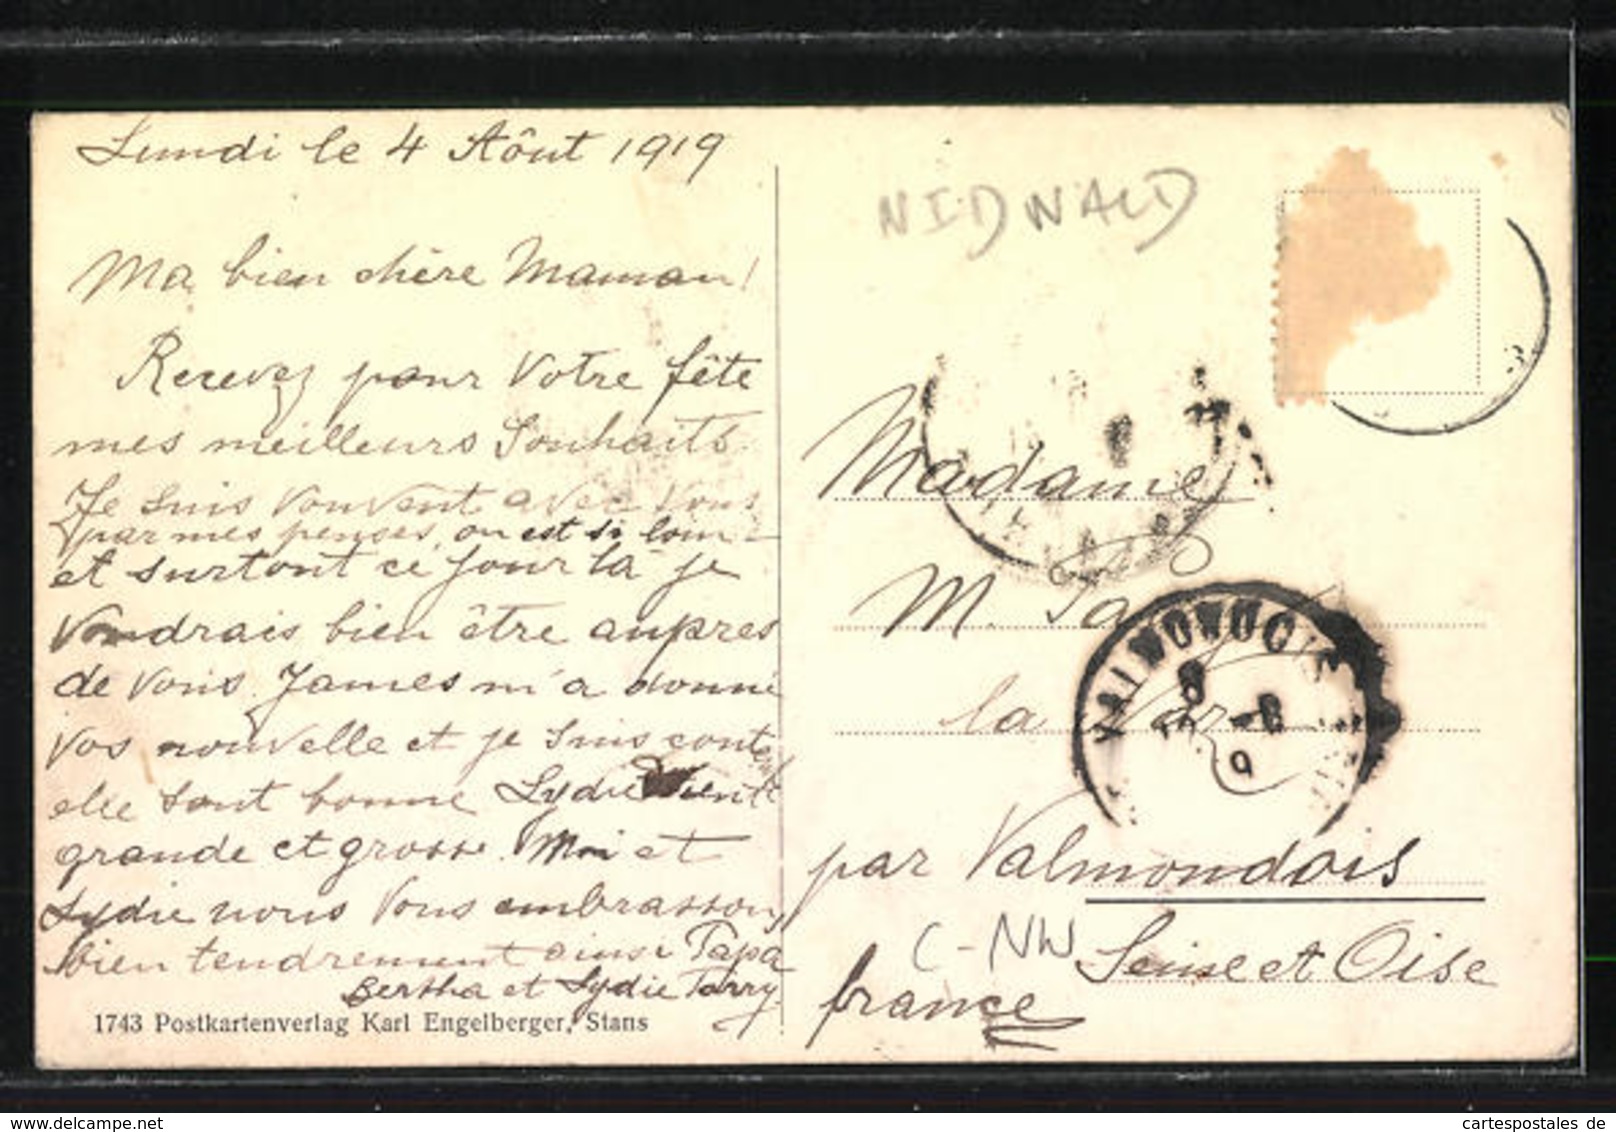 Lundi le 4 Aôut 1919
Ma bien chère Maman!
Recevez pour Votre fête
mes meilleurs Souhaits.
Je suis souvent avec vous
par mes penses, on est si loin
et surtout ce jour là je
Voudrais bien être aupres
de Vous. James m'a donné
vos nouvelle et je suis conte
elle sont bonne Lydie vient
grande et grosse. Moi et
Lydie nous Vous embrasson
bien tendrement ainsi Papa
Bertha et Lydie Tarry
1743 Postkartenverlag Karl Engelberger, Stans
NIDWALD
Madame
M.
la
par Valmondois
C-NW
Seine et Oise
france
cartespostales de